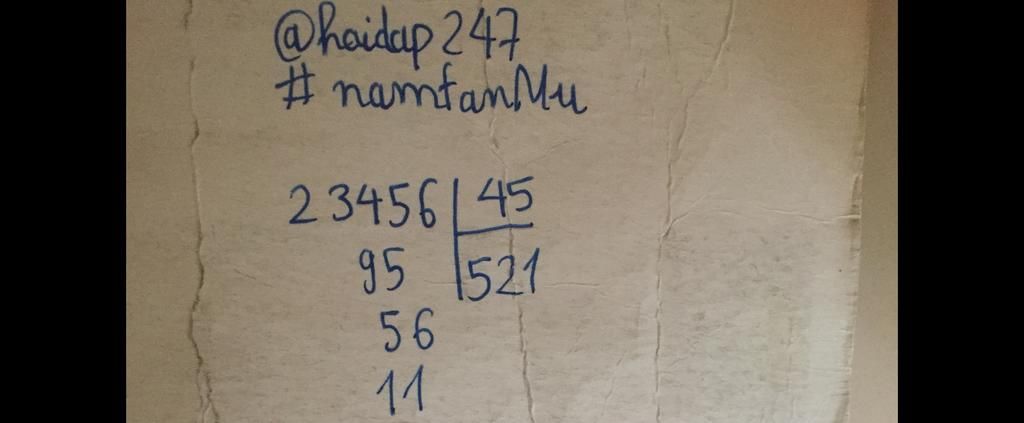 @hoidap247
#namfanMu
23456 45
95 521
56
11